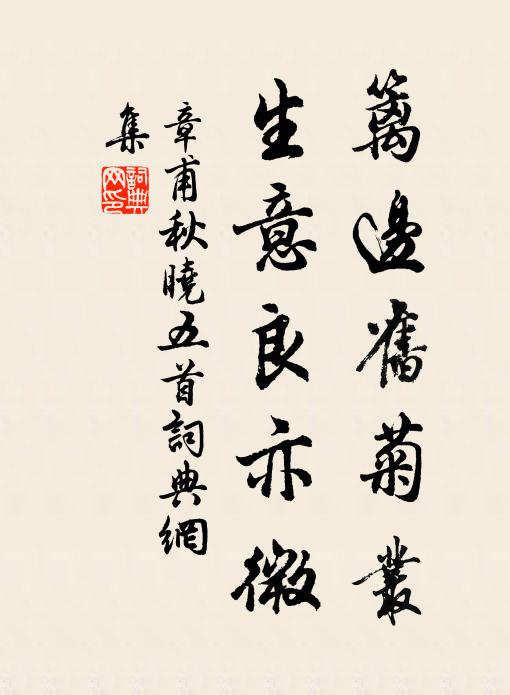 籬邊舊菊叢
生意良亦微
章甫秋曉五首詞典網
集
詞典
网印